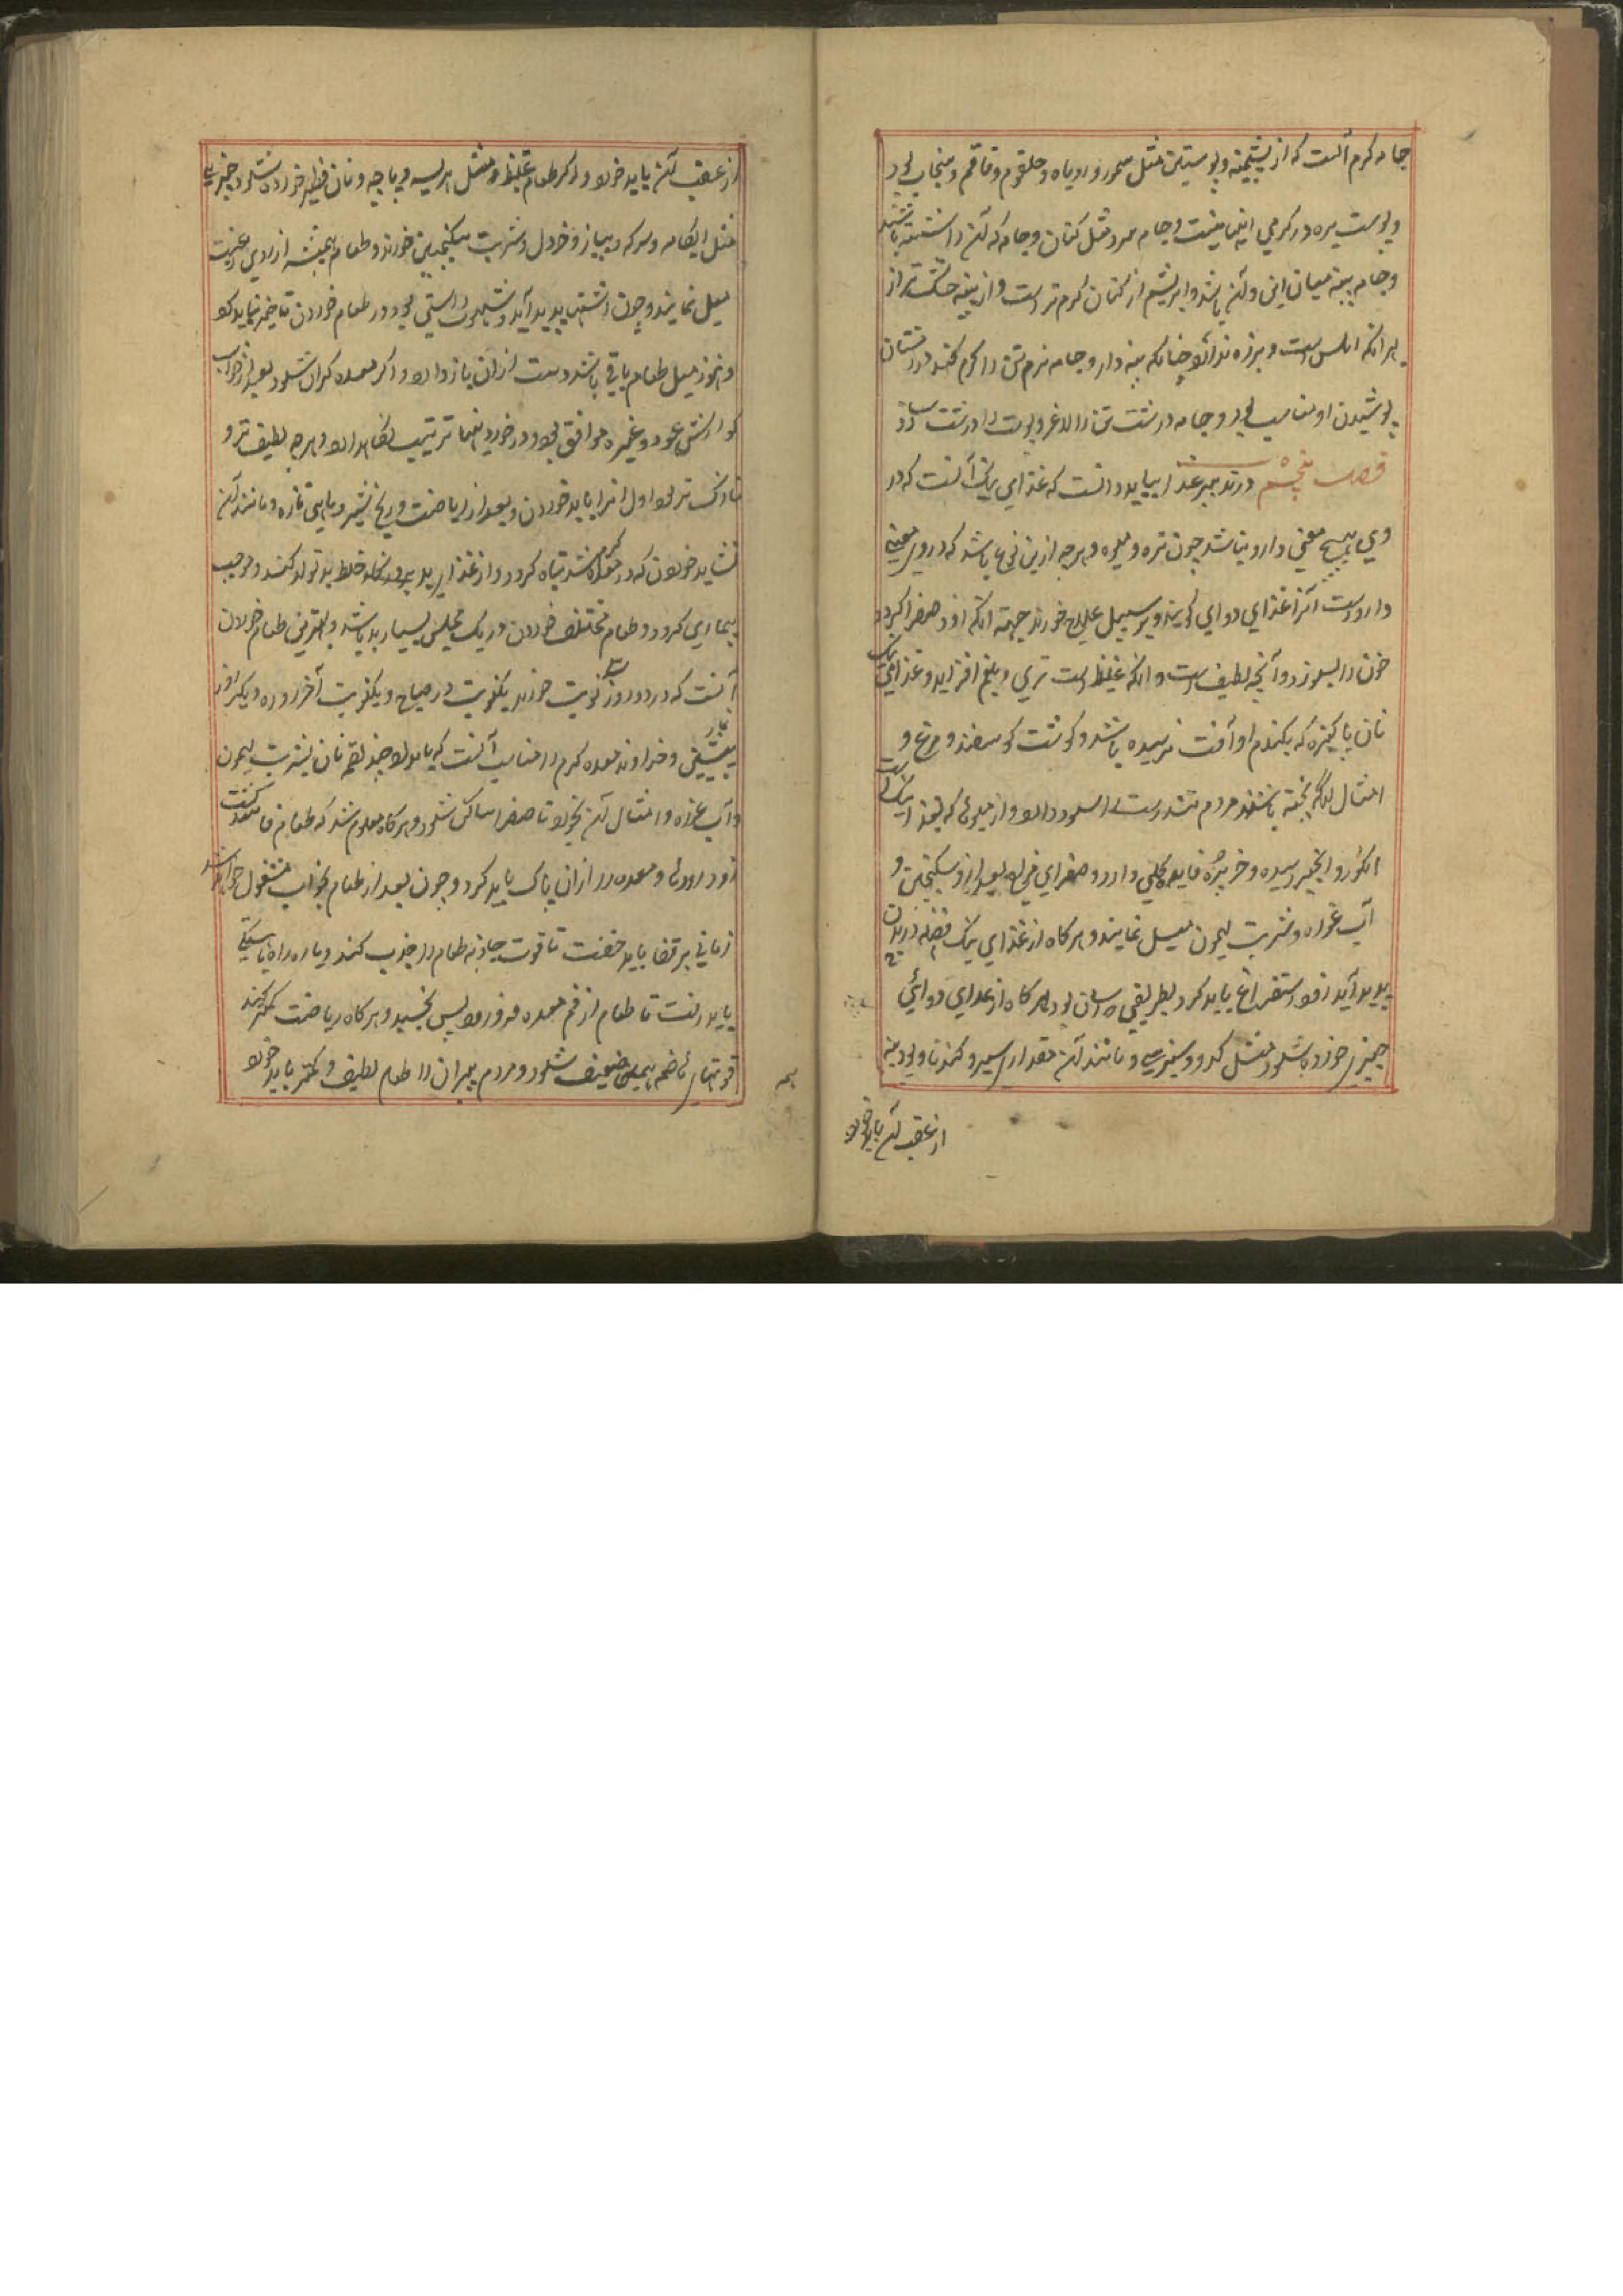 جامه کرم آنست که از پشمینه و پوستین مثل سمور و روباه و حلقوم و قاقم و سنجاب بود
و پوست بره در کرمی اینها نیست و جامه سرد مثل کتان و جامه که آن را شسته باشند
و جامه پنبه میان این و آن باشد و ابریشم از کتان کرم تر است و از پنبه خشک تر از
بهر آنکه املس است و برزه ندارد چنانکه پنبه دارد و جامه نرم تن را کرم کند در زمستان
پوشیدن او مناسب بود و جامه درشت تن را لاغر و پوست را درشت سازد
فصل پنجم در تدبیر غذا بباید دانست که غذای نیک آنست که در
وی هیچ معنی دارو نباشد چون تره و میوه و هرچه ازین نوع باشد که در وی معنی
داروست آنرا غذای دوای کویند و بر سبیل علاج خورند جهة آنکه از او صفرا کردد
خون را بسوزد و آنچه لطیف است و آنکه غلیظ است تری و بلغم افزاید و غذای نیک
نان پاکیزه که بکندم او آفت نرسیده باشد و کوشت کوسفند و مرغ و
امثال او که پخته باشند مردم تندرست را سود دارد و از میوها که بغذا نزدیک است
انکور و انجیر رسیده و خربزه فایده کلی دارد و صفرای مزاج بعد از او سکنجبین و
آب غوره و شربت لیمون میل نمایند و هرکاه از غذای نیک فضله در بدن
پدید آید زود استفراغ باید کرد بطریقی که آسان بود و هرکاه از غذای دوائی
چیزی خورده شود مثل کدو و سبزی و مانند آن مقداری سیر و کندنا و پودینه
از عقب آن باید خورد
از عقب آن باید خورد و اکر طعام غلیظ مثل هریسه و پاچه و نان فطیر خورده شود چیزی
مثل ابکامه و سرکه و پیاز و خردل و شربت سکنجبین خورند و طعام همیشه از روی رغبت
میل نمایند و چون اشتها پدید آید و شهوت راستی بود در طعام خوردن تاخیر نباید کرد
و هنوز میل طعام باقی باشد دست از آن باز دارد و اکر معده کران شود بعد از خواب
کوارش عود و غیره موافق بود و در خوردنیها ترتیب نکاه دارد و هرچه لطیف تر و
نازک تر بود اول آنرا باید خوردن و بعد از ریاضت و رنج شیر و ماهی تازه و مانند آن
نشاید خوردن که در معده کرم شده تباه کردد و از غذای بد پرهیز که خلط بد تولد کند و موجب
بیماری کردد و طعام مختلف خوردن در یک مجلس بسیار بد باشد و بهترین طعام خوردن
آنست که در دو روز سه نوبت خورند یکنوبت در صباح و یکنوبت آخر روز و دیکر روز
نماز پیشین و خداوند معده کرم را مناسب آنست که بامداد چند لقمه نان بشربت لیمون
و آب غوره و امثال آن بخورد تا صفرا ساکن شود و هرکاه معلوم شد که طعام فاسد کشت
زود روده و معده را از آن پاک باید کرد و چون بعد از طعام بخواب مشغول خواهد شد
زمانی بر قفا باید خفت تا قوت جاذبه طعام را جذب کند و پاره راه باستکی
باید رفت تا طعام از فم معده فرو رود پس بخسبد و هرکاه ریاضت کمتر کنند
قوتهای هاضمه ضعیف شود و مردم پیران را طعام لطیف و کمتر باید خورد